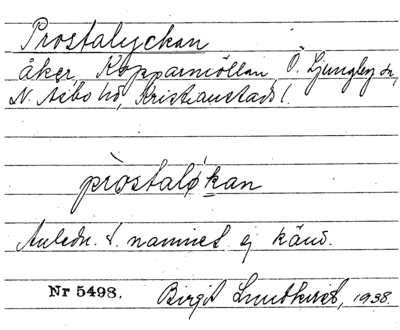 Prostalyckan
åker, Kopparmöllan, Ö. Ljungby sn,
N. Åsbo hd, Kristianstads l.
pròstaløkan
Anledn. t. namnet ej känd.
Nr 5498. Birgit Lundkvist, 1938.